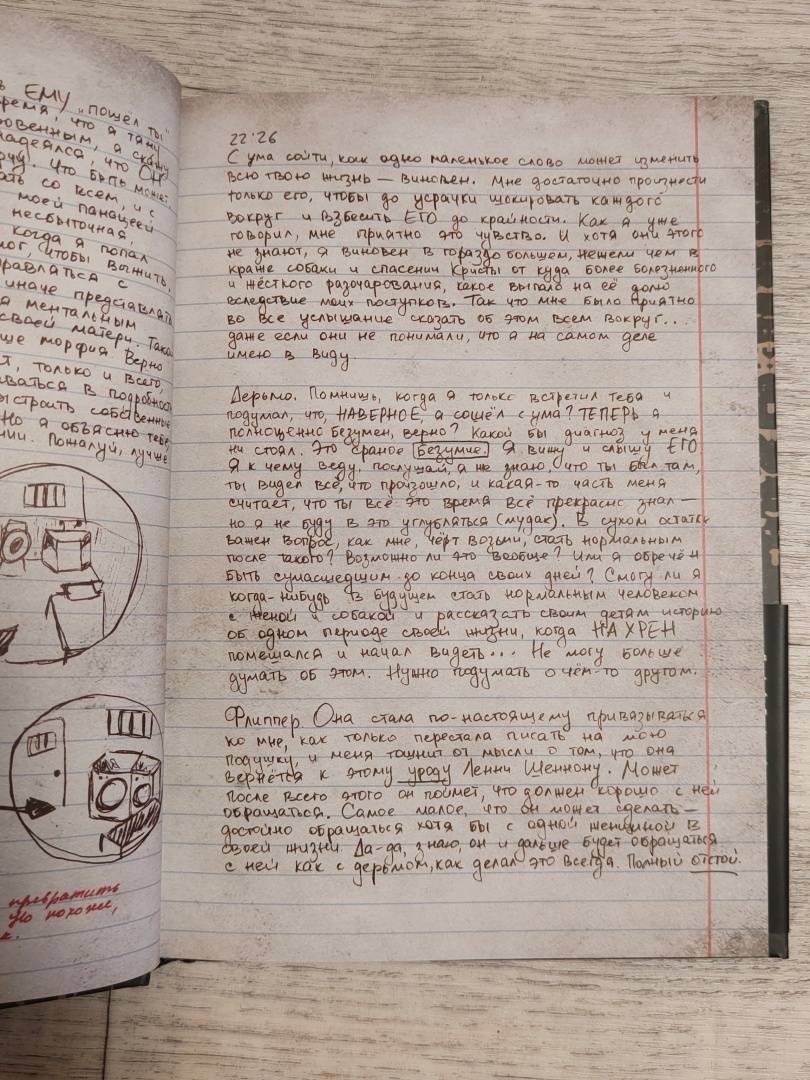 ЕМУ „пошёл ты"
время, что я тяну
овенным, а скажу
надеялся, что ОН
Что быть может,
ать со всем, и с
моей панацеей
несбыточная,
когда я попал
мог, чтобы выжить,
равляться с
иначе представлять
я ментальным
своей матери. Такая
ше морфия. Верно
т, только и всего,
ваться в подробности
ыстроить собственные
Но я объясню тебе
нии. Пожалуй, лучше
превратить
похоже,
к.
22:26
С ума сойти, как одно маленькое слово может изменить
всю твою жизнь — виновен. Мне достаточно произнести
только его, чтобы до усрачки шокировать каждого
вокруг и взбесить ЕГО до крайности. Как я уже
говорил, мне приятно это чувство. И хотя они этого
не знают, я виновен в гораздо большем, нежели чем в
краже собаки и спасении Кристы от куда более болезненного
и жёсткого разочарования, какое выпало на её долю
вследствие моих поступков. Так что мне было приятно
во все услышание сказать об этом всем вокруг...
даже если они не понимали, что я на самом деле
имею в виду.
Дерьмо. Помнишь, когда я только встретил тебя и
подумал, что, НАВЕРНОЕ, я сошёл с ума? ТЕПЕРЬ я
полноценно безумен, верно? Какой бы диагноз у меня
ни стоял. Это сраное Безумие. Я вижу и слышу ЕГО.
Я к чему веду, послушай, я не знаю, что ты был там,
ты видел всё, что произошло, и какая-то часть меня
считает, что ты всё это время всё прекрасно знал —
но я не буду в это углубляться (мудак). В сухом остатке
важен вопрос, как мне, чёрт возьми, стать нормальным
после такого? Возможно ли это вообще? Или я обречён
быть сумасшедшим до конца своих дней? Смогу ли я
когда-нибудь в будущем стать нормальным человеком
с женой и собакой и рассказать своим детям историю
об одном периоде своей жизни, когда НАХРЕН
помешался и начал видеть... Не могу больше
думать об этом. Нужно подумать о чём-то другом.
Флиппер. Она стала по-настоящему привязываться
ко мне, как только перестала писать на мою
подушку, и меня тошнит от мысли о том, что она
вернётся к этому уроду Ленни Шеннону. Может
после всего этого он поймёт, что должен хорошо с ней
обращаться. Самое малое, что он может сделать —
достойно обращаться хотя бы с одной женщиной в
своей жизни. Да-да, знаю, он и дальше будет обращаться
с ней как с дерьмом, как делал это всегда. Полный отстой.